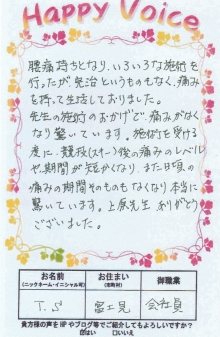 Happy Voice
腰痛持ちとなり、いろいろな施術を
行ったが完治というものもなく、痛み
を持って生活しておりました。
先生の施術のおかげで、痛みがなく
なり驚いています。施術を受ける
度に、競技(スキー)後の痛みのレベル
や、期間が短かくなり、また日頃の
痛みの期間そのものもなくなり本当に
驚いています。上原先生ありがとう
ございました。
お名前
(ニックネーム・イニシャル可)
お住まい
(市町村)
御職業
T.S
富士見
会社員
貴方様の声をHPやブログ等でご紹介してもよろしいですか?
はい
いいえ